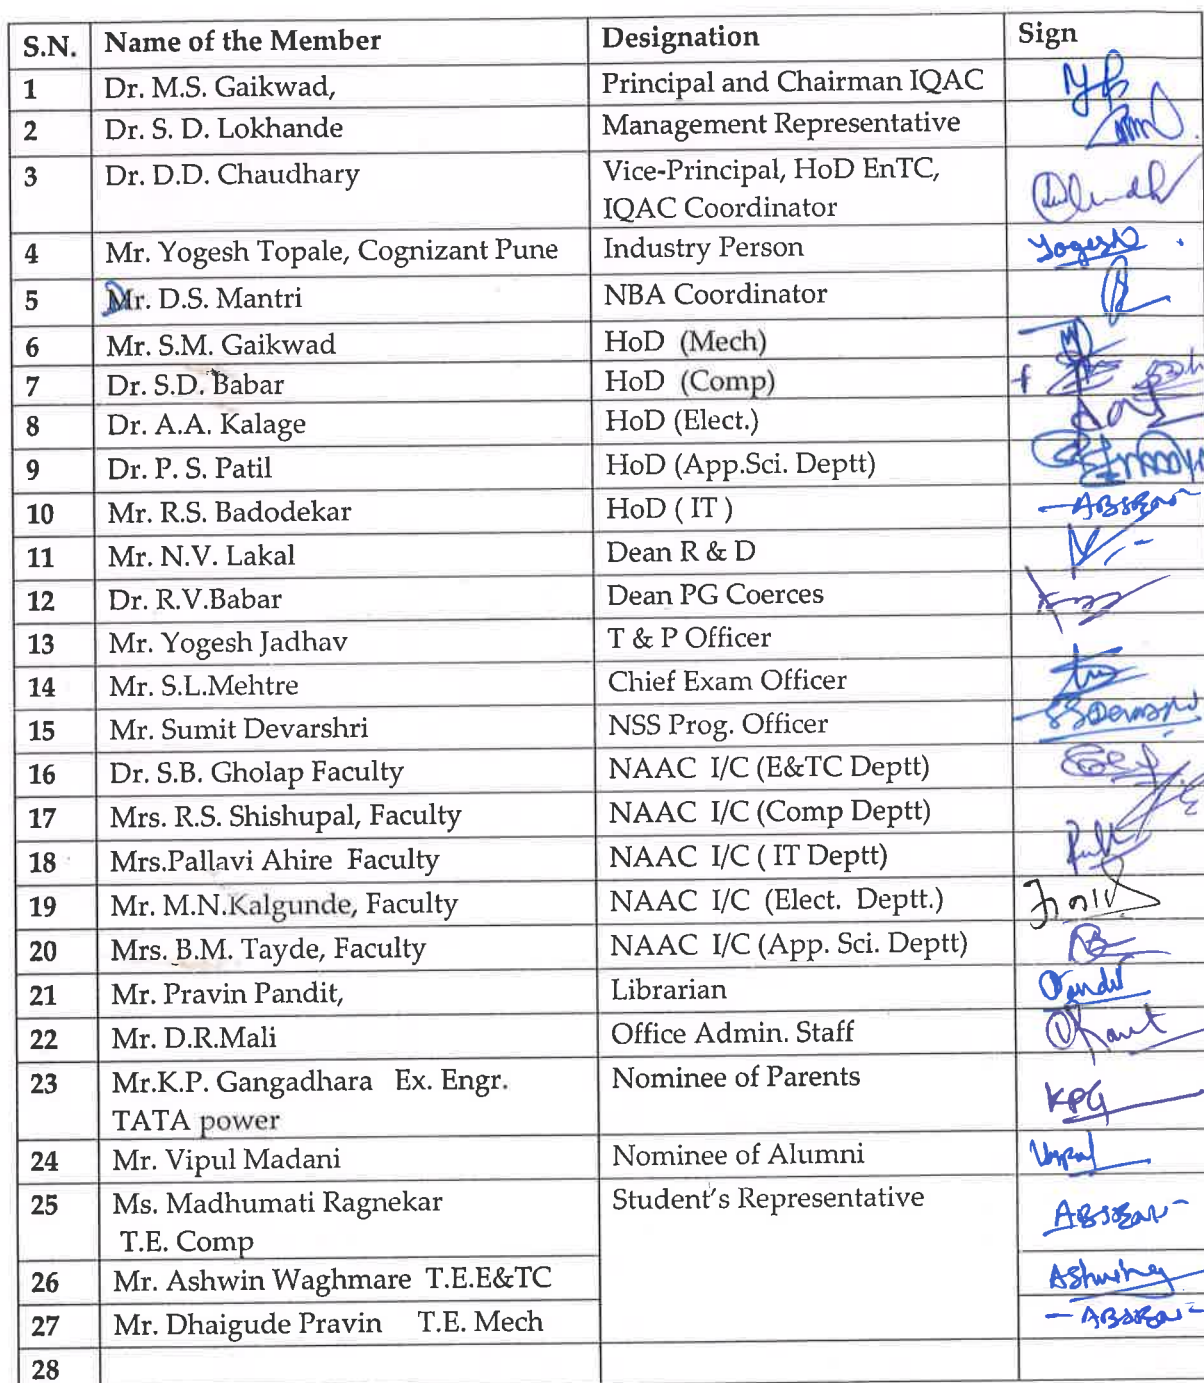 S.N. Name of the Member Designation Sign
1 Dr. M.S. Gaikwad, Principal and Chairman IQAC
2 Dr. S. D. Lokhande Management Representative
3 Dr. D.D. Chaudhary Vice-Principal, HoD EnTC,
IQAC Coordinator
4 Mr. Yogesh Topale, Cognizant Pune Industry Person Yogesh
5 Mr. D.S. Mantri NBA Coordinator
6 Mr. S.M. Gaikwad HoD (Mech)
7 Dr. S.D. Babar HoD (Comp)
8 Dr. A.A. Kalage HoD (Elect.)
9 Dr. P. S. Patil HoD (App.Sci. Deptt)
10 Mr. R.S. Badodekar HoD ( IT )
11 Mr. N.V. Lakal Dean R & D
12 Dr. R.V.Babar Dean PG Coerces
13 Mr. Yogesh Jadhav T & P Officer
14 Mr. S.L.Mehtre Chief Exam Officer
15 Mr. Sumit Devarshri NSS Prog. Officer
16 Dr. S.B. Gholap Faculty NAAC I/C (E&TC Deptt)
17 Mrs. R.S. Shishupal, Faculty NAAC I/C (Comp Deptt)
18 Mrs.Pallavi Ahire Faculty NAAC I/C ( IT Deptt)
19 Mr. M.N.Kalgunde, Faculty NAAC I/C (Elect. Deptt.)
20 Mrs. B.M. Tayde, Faculty NAAC I/C (App. Sci. Deptt)
21 Mr. Pravin Pandit, Librarian
22 Mr. D.R.Mali Office Admin. Staff
23 Mr.K.P. Gangadhara Ex. Engr. Nominee of Parents KPG
TATA power
24 Mr. Vipul Madani Nominee of Alumni
25 Ms. Madhumati Ragnekar Student's Representative
T.E. Comp
26 Mr. Ashwin Waghmare T.E.E&TC
27 Mr. Dhaigude Pravin T.E. Mech
28